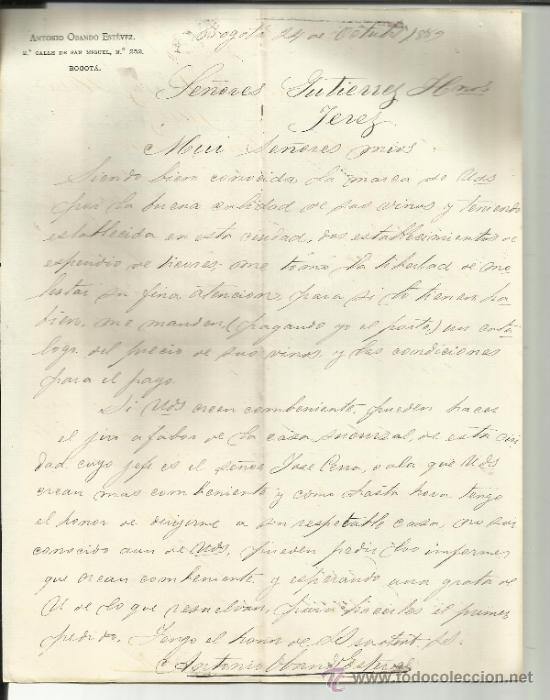 ANTONIO OBANDO ESTÉVEZ.
2.ª CALLE DE SAN MIGUEL, N.º 252.
BOGOTÁ.
Bogotá 24 de Octubre 1889
Señores Gutierrez Hnos
Jerez
Mui Señores mios
Siendo bien conocida la marca de Uds
por la buena calidad de sus vinos y teniendo
establecida en esta ciudad, dos establecimientos de
expendio de licores, me tomo la libertad de mo
lestar su fina atencion, para si lo tienen ha
bien, me manden (pagando yo el porte) un cata
logo del precio de sus vinos, y las condiciones
para el pago.
Si Uds creen combeniente, pueden hacer
el jiro a fabor de la casa sucursal, de esta ciu
dad, cuyo jefe es el señor Jose Perra, o a la que Uds
crean mas combeniente y como hasta hora tengo
el honor de dirijirme a su respetable casa, no soy
conocido aun de Uds, pueden pedir los informes
que crean combeniente y esperando una grata de
U de lo que resuelvan, para hacerles el primer
pedido. Tengo el honor de
Antonio Obando Estévez
todocoleccion.net